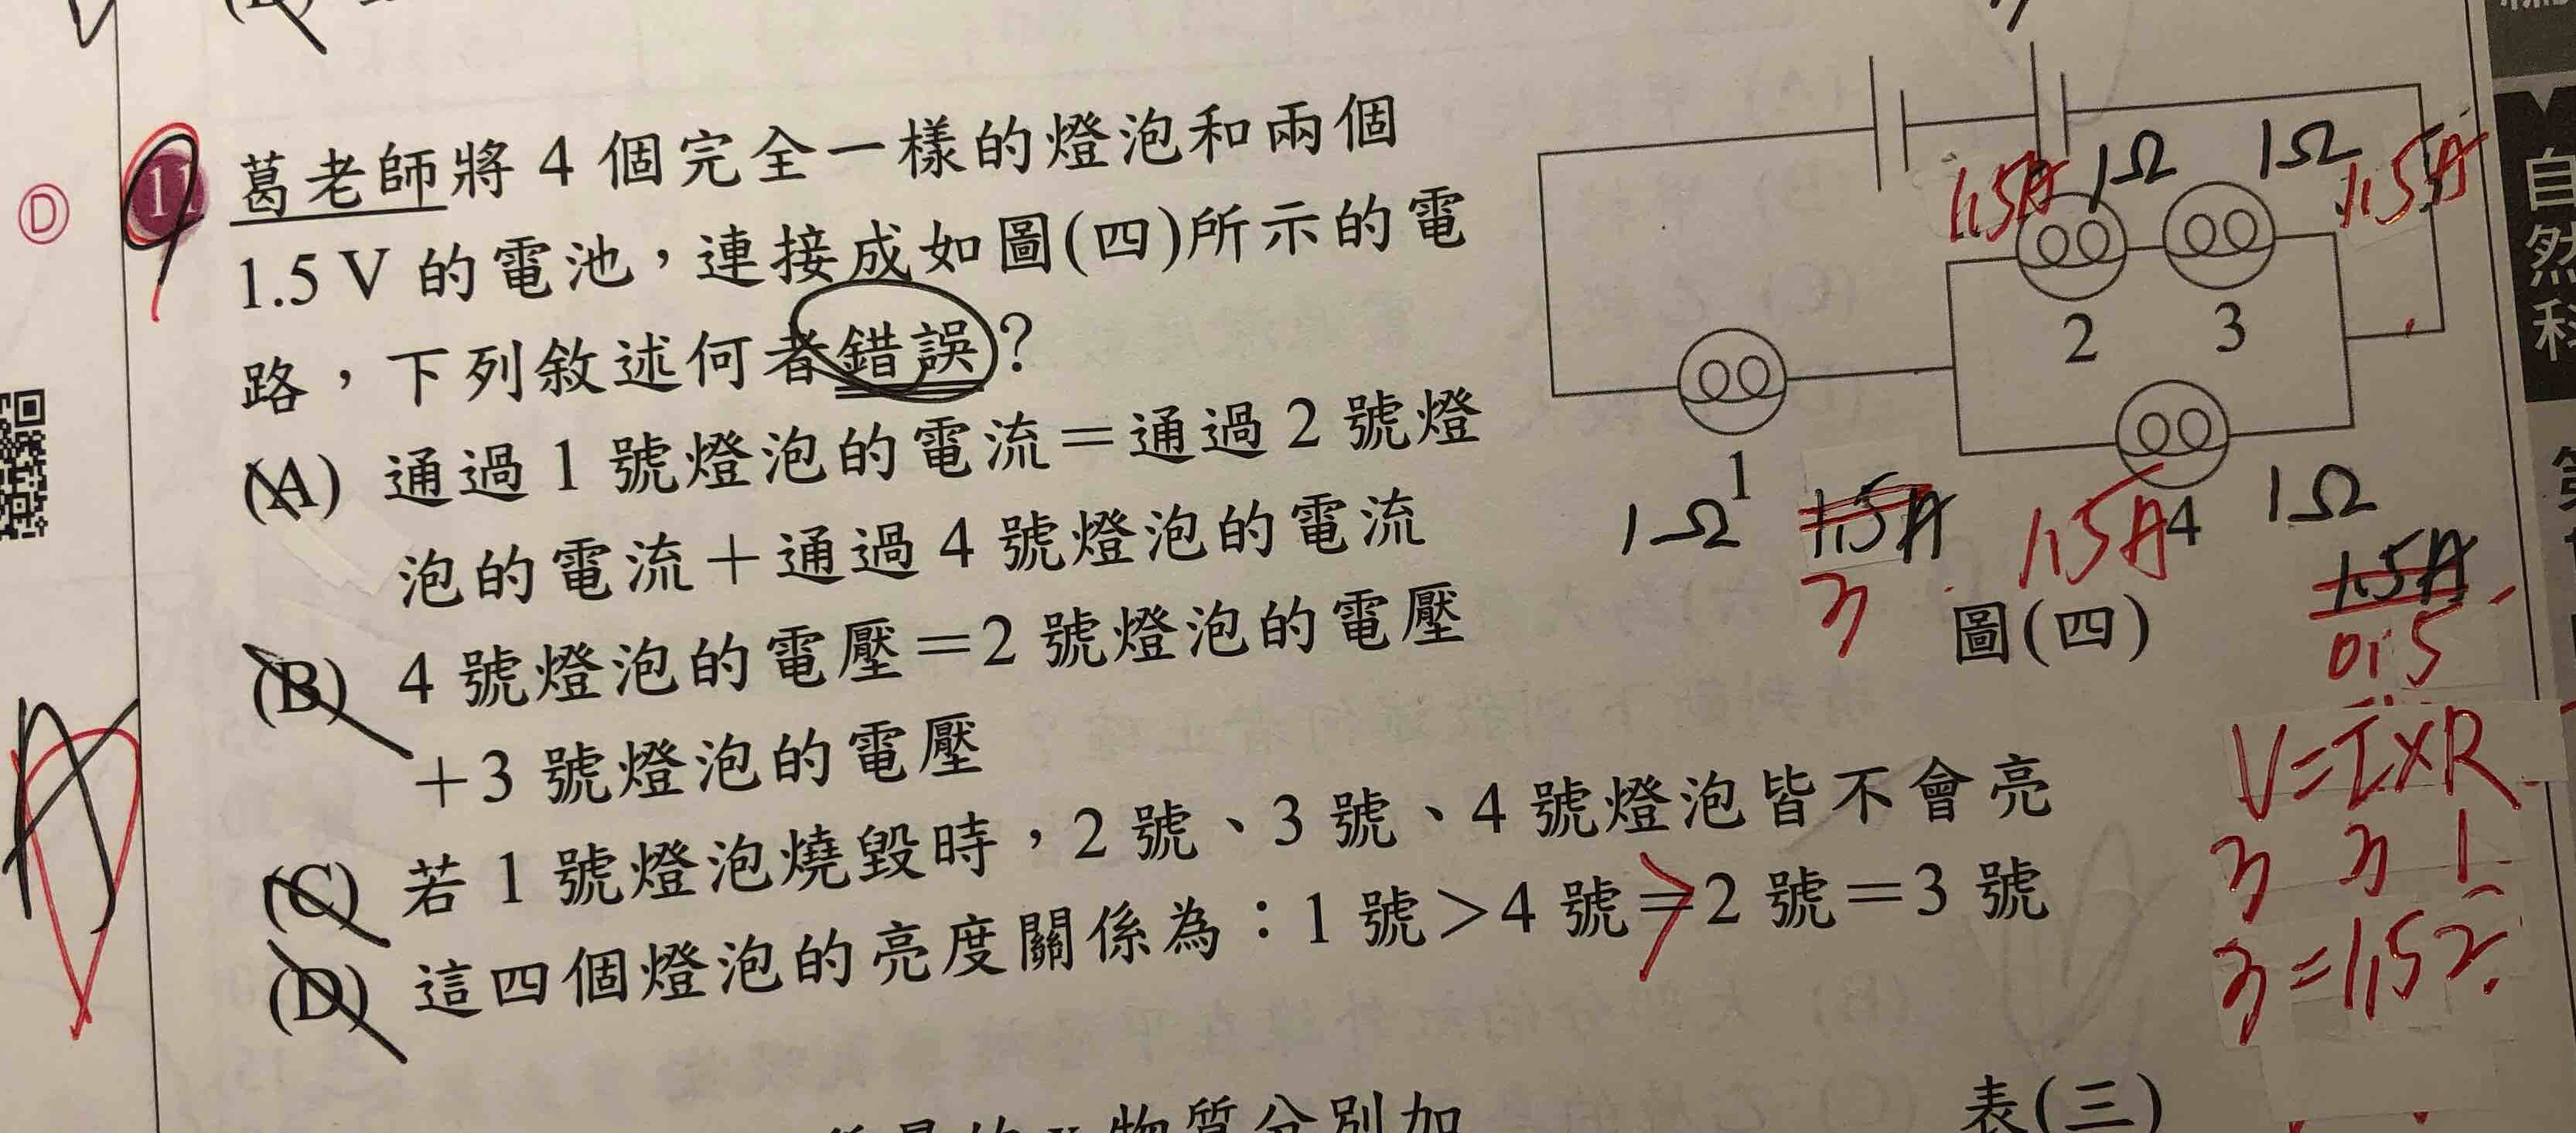 Ⓓ
11 葛老師將 4 個完全一樣的燈泡和兩個
1.5 V 的電池，連接成如圖(四)所示的電
路，下列敘述何者錯誤？
(A) 通過 1 號燈泡的電流＝通過 2 號燈
泡的電流＋通過 4 號燈泡的電流
(B) 4 號燈泡的電壓＝2 號燈泡的電壓
＋3 號燈泡的電壓
(C) 若 1 號燈泡燒毀時，2 號、3 號、4 號燈泡皆不會亮
(D) 這四個燈泡的亮度關係為：1 號＞4 號＝2 號＝3 號
A
>
1.5A 1Ω 1Ω 1.5A
2 3
1
1Ω 1.5A 1.5A 4 1Ω
3
1.5A
圖(四)
0.5
V=I×R
3 3 1
自然科
表(三)